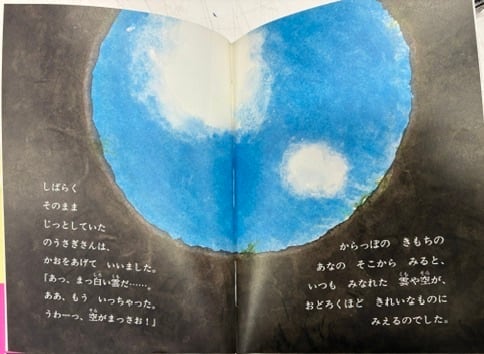 しばらく
そのまま
じっとしていた
のうさぎさんは、
かおをあげて　いいました。
「あっ、まっ白い雲だ……。
ああ、もう　いっちゃった。
うわーっ、空がまっさお！」
からっぽの　きもちの
あなの　そこから　みると、
いつも　みなれた　雲や空が、
おどろくほど　きれいなものに
みえるのでした。